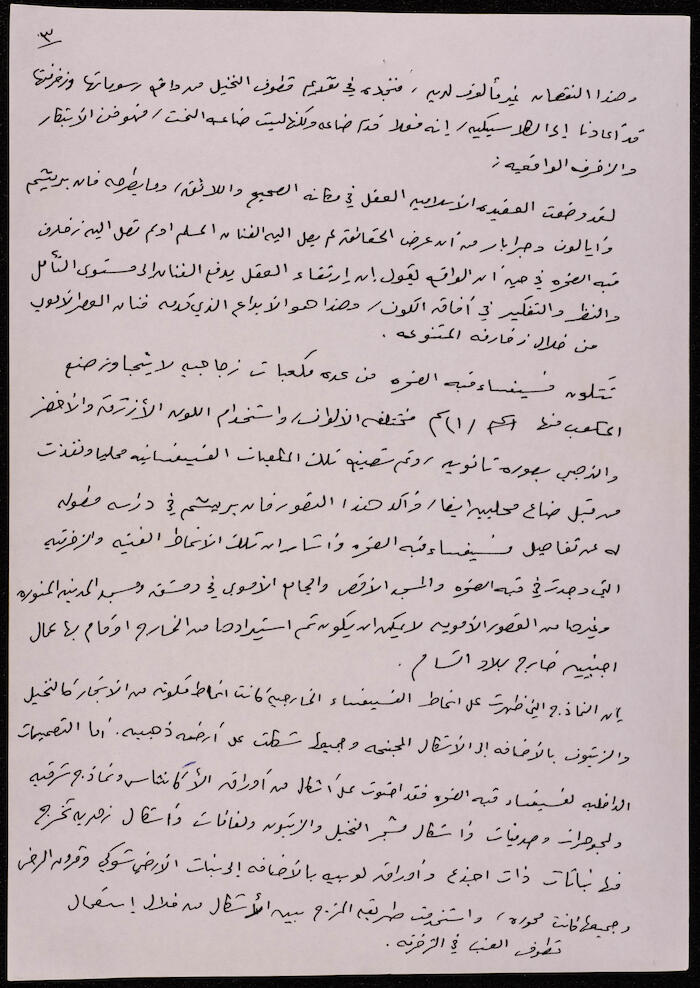 ٣
وهذا النقصان غير مألوف لديه، فنجده في تقديم قطوف النخيل من واقع رسوماتها وزخرفتها
قد أعادنا إلى الكلاسيكيه، إنه فعلا قدم صناعه ولكنها ليست صناعه النحت، فهو فن الابتكار
والزخرف الواقعيه ؛
لقد وضعت العقيده الأسلاميه العقل في مكانه الصحيح واللائق، وما يطرحه فان بريشم
وأيالون وجرابار من أن عرض الحقائق لم يصل اليه الفنان المسلم اولم تصل اليه زخارف
قبه الصخره في حين أن الواقع يقول إن إرتقاء العقل يدفع الفنان إلى مستوى التأمل
والنظر والتفكير في أفاق الكون، وهذا هو الأبداع الذي قدمه فنان العصر الأموي
من خلال زخارفه المتنوعه .
تتكون فسيفساء قبه الصخره من عده مكعبات زجاجيه لا يتجاوز صنع
المكعب منها ١سم / ١سم مختلفه الالوان، واستخدام اللون الأزرق والأخضر
والذهبي بصوره ثانويه، وتم تصنيع تلك المكعبات الفسيفسائيه محليا ونفذت
من قبل صناع محليين ايضا، وأكد هذا التصور فان بريشم في دراسه مطوله
له عن تفاصيل فسيفساء قبه الصخره وأشار ان تلك الأنماط الفنيه والزخرفيه
التي وجدت في قبه الصخره والمسجد الأقصى والجامع الأموي في دمشق ومسجد المدينه المنوره
وغيرها من القصور الأمويه لا يمكن ان يكون تم استيرادها من الخارج اوقام بها عمال
اجنبيه خارج بلاد الشام .
إن النماذج التي ظهرت على انماط الفسيفساء الخارجيه كانت انماط مكونه من الأشجار كالنخيل
والزيتون بالأضافه إلى الأشكال المجنحه وجميعها شكلت على أرضيه ذهبيه . أما التصميمات
الداخليه لفسيفساء قبه الصخره فقد احتوت على أشكال من أوراق الأكانثاس ونماذج شرقيه
ولمجوهرات وصدفيات وأشكال شجر النخيل والزيتون ولفائف وأشكال زهريه تخرج
منها نباتات ذات اجذع وأوراق لوبيه بالأضافه إلى نبات الأرضي شوكي وقرون الرخى
وجميعها كانت محوره، واستخدمت طريقه المزج بين الأشكال من خلال إستعمال
قطوف العنب في الزخرفه .